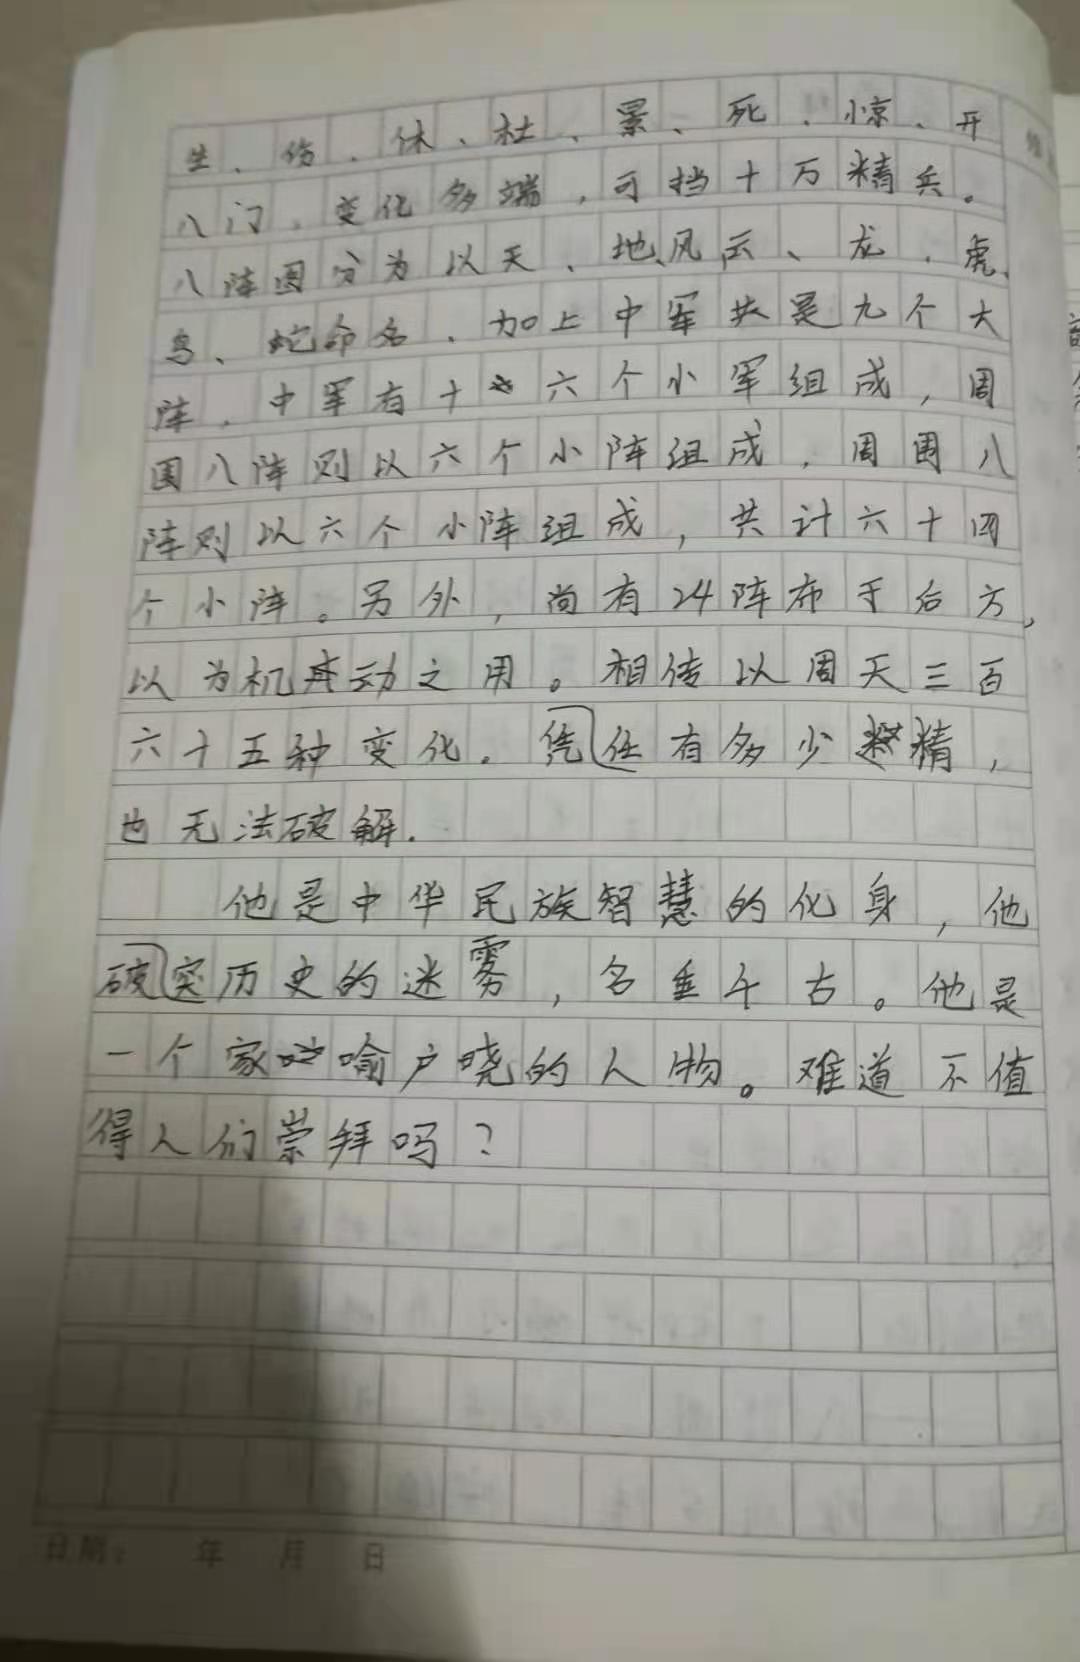 生、伤、休、杜、景、死、惊、开
八门,变化多端,可挡十万精兵。
八阵图分为以天、地、风云、龙、虎、
鸟、蛇命名,加上中军共是九个大
阵,中军有十六个小军组成,周
围八阵则以六个小阵组成,周围八
阵则以六个小阵组成,共计六十四
个小阵。另外,尚有24阵布于后方,
以为机动之用。相传以周天三百
六十五种变化。凭任有多少精,
也无法破解.
他是中华民族智慧的化身,他
破突历史的迷雾,名垂千古。他是
一个家喻户晓的人物。难道不值
得人们崇拜吗?
日期: 年 月 日